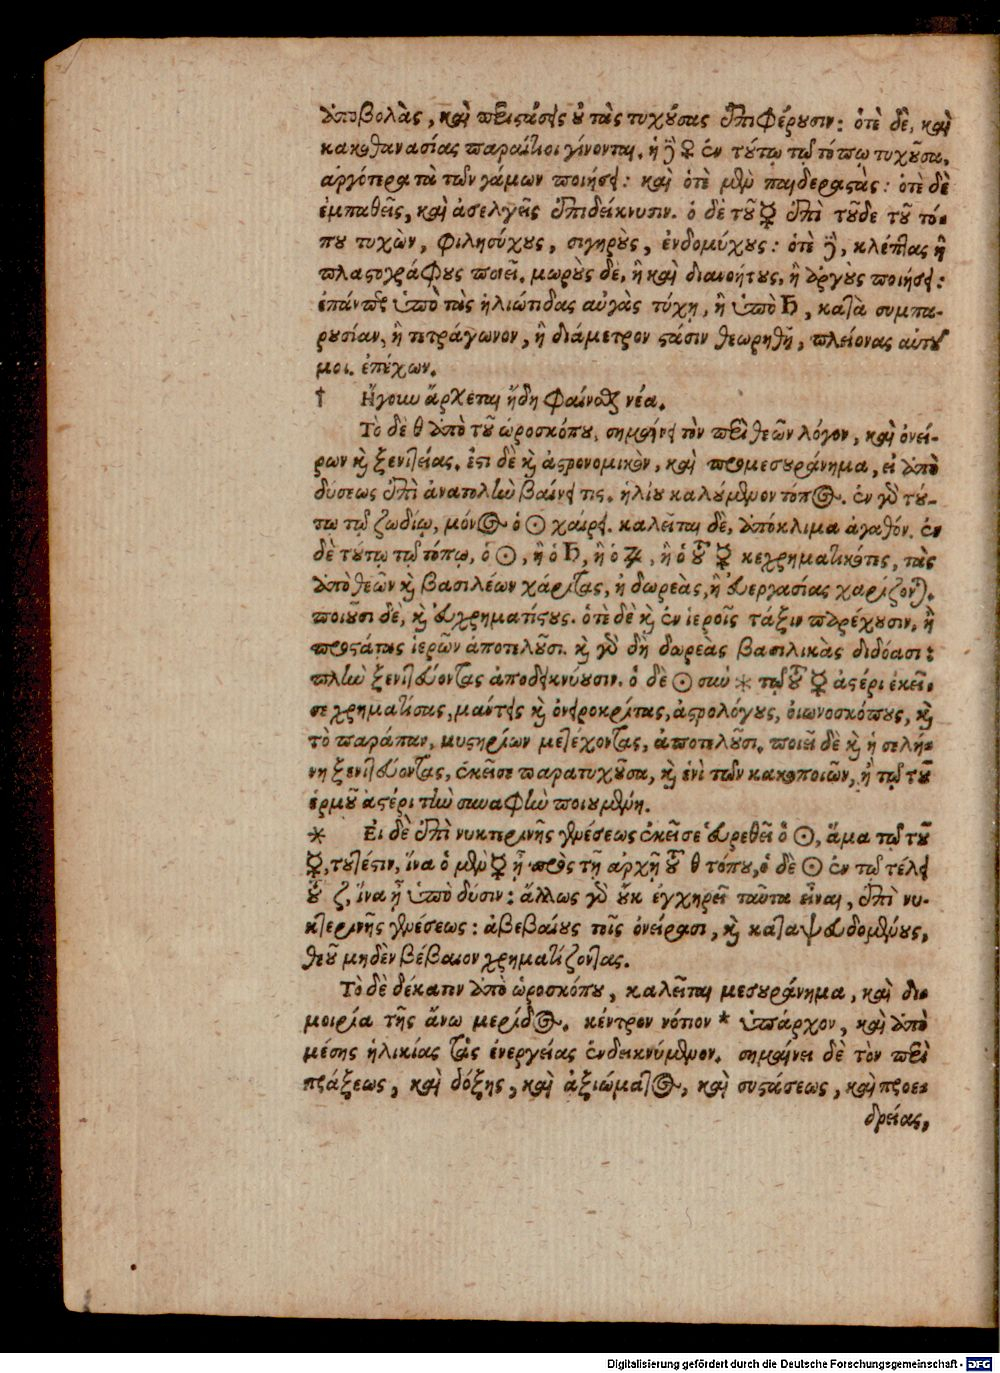 ἀποβολὰς, καὶ περιστάσεις οὐ τὰς τυχούσας ἐπιφέρουσιν: ὁτὲ δὲ, καὶ
κακοθανασίας παραίτιοι γίνονται. ἡ δὲ ♀ ἐν τούτῳ τῷ τόπῳ τυχοῦσα,
ἀργότερα τὰ τῶν γάμων ποιήσει: καὶ ὁτὲ μὲν παιδεραςὰς: ὁτὲ δὲ
ἐμπαθεῖς, καὶ ἀσελγεῖς ἐπιδείκνυσιν. ὁ δὲ τοῦ ☿ ἐπὶ τοῦδε τοῦ τό-
που τυχὼν, φιλησύχους, σιγηροὺς, ἐνδομύχους: ὁτὲ δὲ, κλέπτας ἢ
πλαςογράφους ποιεῖ. μωροὺς δὲ, ἢ καὶ διανοήτους, ἢ ἀργοὺς ποιήσει:
ἐπάντε ὑπὸ τὰς ἡλιώτιδας αὐγὰς τύχῃ, ἢ ὑπὸ ♄, κατὰ συμπα-
ρουσίαν, ἢ τετράγωνον, ἢ διάμετρον ςάσιν θεωρηθῇ, πλείονας αὐτοῦ
μοι. ἐπέχων.
† Ἤγουν ἄρχεται ἤδη φαίνεσθαι νέα.
Τὸ δὲ θ ἀπὸ τοῦ ὡροσκόπου, σημαίνει τὸν περὶ θεῶν λόγον, καὶ ὀνεί-
ρων καὶ ξενιτείας. ἔςι δὲ καὶ ἀςρονομικὸν, καὶ προμεσουράνημα, εἰ ἀπὸ
δύσεως ἐπὶ ἀνατολὴν βαίνει τις. ἡλίου καλούμενον τόπος. ἐν γὸ τού-
τῳ τῷ ζωδίῳ, μόνος ὁ ☉ χαίρει. καλεῖται δὲ, ἀπόκλιμα ἀγαθόν. ἐν
δὲ τούτῳ τῷ τόπῳ, ὁ ☉, ἢ ὁ ♄, ἢ ὁ ♃, ἢ ὁ τοῦ ☿ κεχρηματικότες, τὰς
ἀπὸ θεῶν καὶ βασιλέων χάριτας, ἢ δωρεὰς, ἢ εὐεργασίας χαρίζονται.
ποιοῦσι δὲ, καὶ εὐχρηματίςους. ὁτὲ δὲ καὶ ἐν ἱεροῖς τάξιν παρέχουσιν, ἢ
προςάτας ἱερῶν ἀποτελοῦσι. καὶ γὸ δὴ δωρεὰς βασιλικὰς διδόασι:
πλὴν ξενιτεύοντας ἀποδεικνύουσιν. ὁ δὲ ☉ σὺν ⚹ τῷ τοῦ ☿ ἀςέρι ἐκεῖ-
σε χρηματίσας, μάντεις καὶ ὀνειροκρίτας, ἀςρολόγους, οἰωνοσκόπους, καὶ
τὸ παράπαν, μυςηρίων μετέχοντας, ἀποτελοῦσι. ποιεῖ δὲ καὶ ἡ σελή-
νη ξενιτεύοντας, ἐκεῖσε παρατυχοῦσα, καὶ ἑνὶ τῶν κακοποιῶν, ἢ τῷ τοῦ
ἑρμοῦ ἀςέρι τὴν συναφὴν ποιουμένη.
⚹ Εἰ δὲ ἐπὶ νυκτερινῆς γενέσεως ἐκεῖσε εὑρεθεῖ ὁ ☉, ἅμα τῷ τοῦ
☿, τουτέςιν, ἵνα ὁ μὲν ☿ ᾖ πρὸς τῇ ἀρχῇ τοῦ θ τόπου, ὁ δὲ ☉ ἐν τῷ τέλει
τοῦ ζ, ἵνα ᾖ ὑπὸ δύσιν: ἄλλως γὸ οὐκ ἐγχηρεῖ ταῦτα εἶναι, ἐπὶ νυ-
κτερινῆς γενέσεως: ἀβεβαίους τοῖς ὀνείρασι, καὶ καταψευδομένους,
θεοῦ μηδὲν βέβαιον χρηματίζοντας.
Τὸ δὲ δέκατον ἀπὸ ὡροσκόπου, καλεῖται μεσουράνημα, καὶ δι-
μοιρία τῆς ἄνω μερίδος. κέντρον νότιον * ὑπάρχον, καὶ ἀπὸ
μέσης ἡλικίας τὰς ἐνεργείας ἐνδεικνύμενον. σημαίνει δὲ τὸν περὶ
πράξεως, καὶ δόξης, καὶ ἀξιώματος, καὶ συςάσεως, καὶ προε-
δρείας,
Digitalisierung gefördert durch die Deutsche Forschungsgemeinschaft - DFG